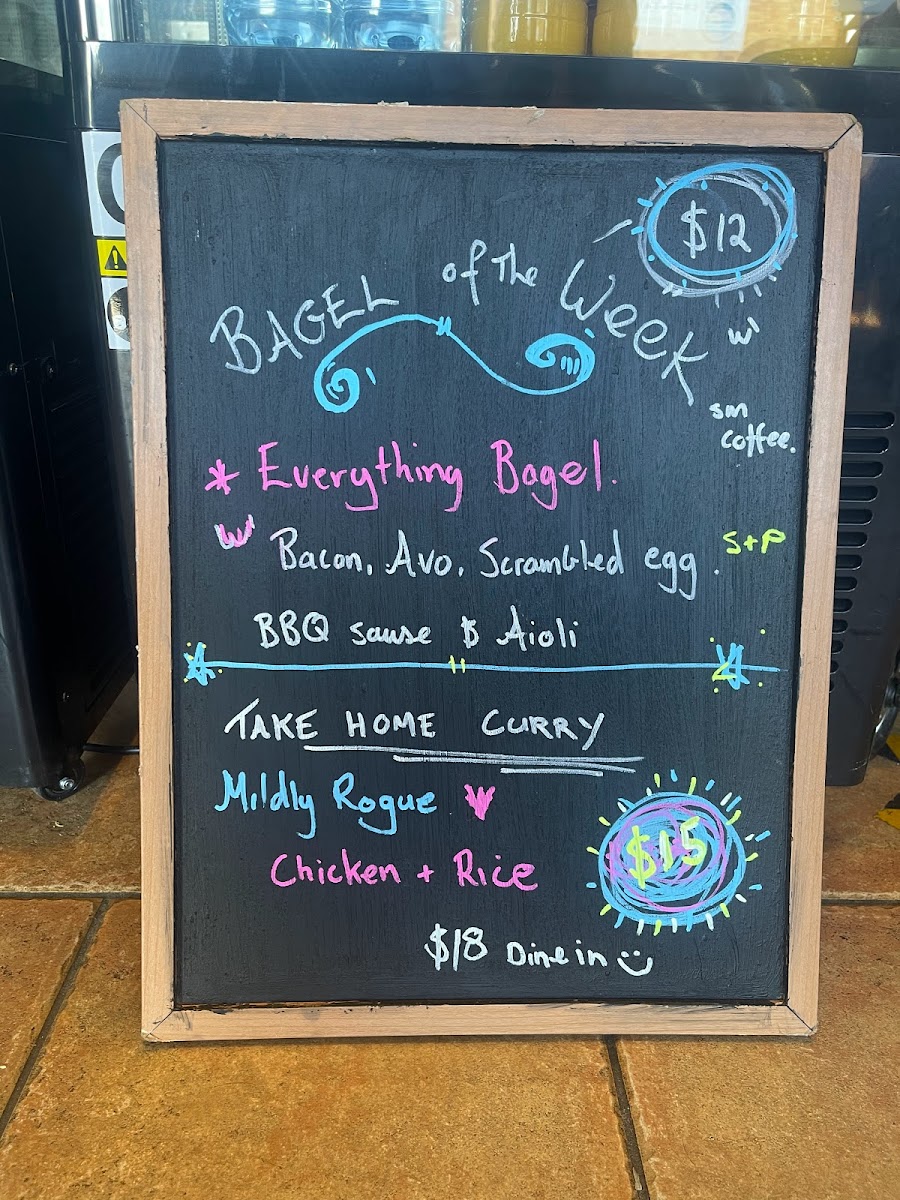 $12
BAGEL of The Week
w/
sm
coffee.
* Everything Bagel.
w/ Bacon, Avo, Scrambled egg. S+P
BBQ sause & Aioli
TAKE HOME CURRY
Mildly Rogue
Chicken + Rice
$15
$18 Dine in